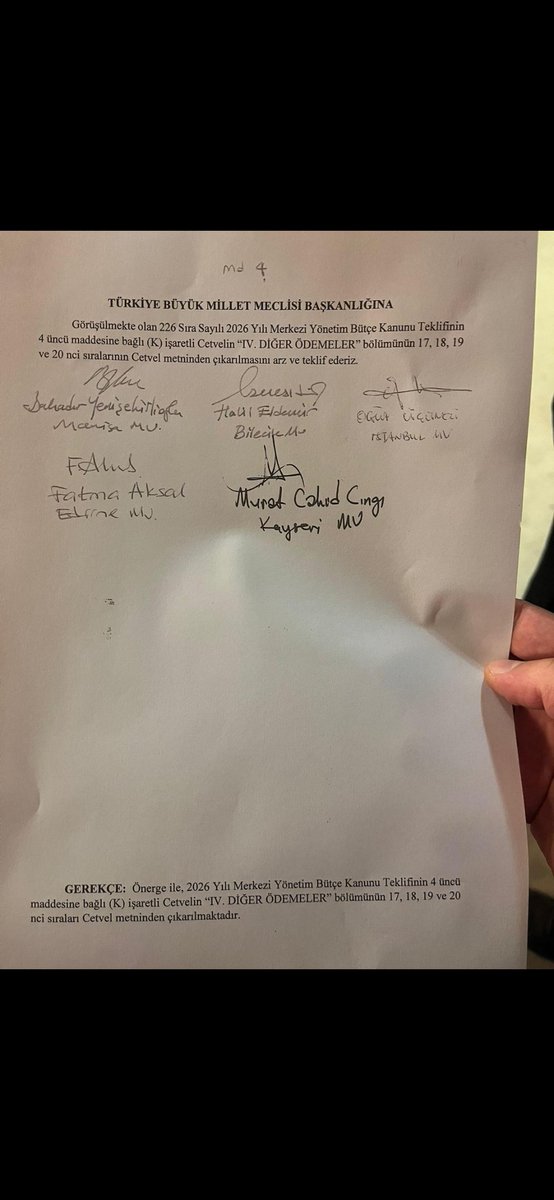 Md 4
TÜRKİYE BÜYÜK MİLLET MECLİSİ BAŞKANLIĞINA
Görüşülmekte olan 226 Sıra Sayılı 2026 Yılı Merkezi Yönetim Bütçe Kanunu Teklifinin
4 üncü maddesine bağlı (K) işaretli Cetvelin “IV. DİĞER ÖDEMELER” bölümünün 17, 18, 19
ve 20 nci sıralarının Cetvel metninden çıkarılmasını arz ve teklif ederiz.
Bahadır Yenişehirlioğlu Halil Eldemir
Manisa MV. Bilecik Mv İSTANBUL MV
Fatma Aksal Murat Cahid Cıngı
Edirne MV. Kayseri MV
GEREKÇE: Önerge ile, 2026 Yılı Merkezi Yönetim Bütçe Kanunu Teklifinin 4 üncü
maddesine bağlı (K) işaretli Cetvelin “IV. DİĞER ÖDEMELER” bölümünün 17, 18, 19 ve 20
nci sıraları Cetvel metninden çıkarılmaktadır.